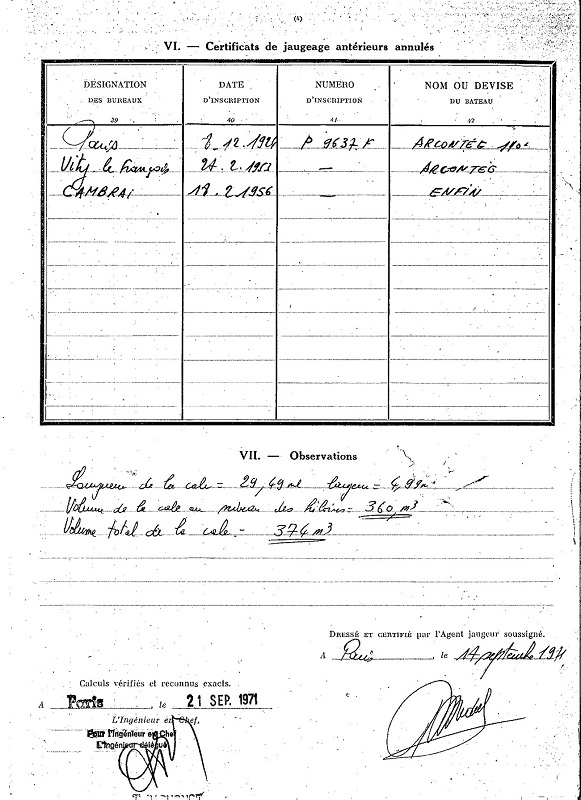 (4)
VI. — Certificats de jaugeage antérieurs annulés
DÉSIGNATION DES BUREAUX DATE D'INSCRIPTION NUMERO D'INSCRIPTION NOM OU DEVISE DU BATEAU
39 40 41 42
Paris 12.192 P 9637 F ARCONTEE
Vitry le François 27.2.195 — ARCONTEE
CAMBRAI 17.2.1956 — ENFIN
VII. — Observations
Longueur de la cale = 29,49 ml largeur = 4,99 m
Volume de la cale au niveau des hiloires = 360, m³
Volume total de la cale - 374 m³
DRESSÉ ET CERTIFIÉ par l'Agent jaugeur soussigné.
A Paris, le 17 septembre 1971
Calculs vérifiés et reconnus exacts.
A Paris, le 21 SEP. 1971
L'Ingénieur en Chef,
Pour l'Ingénieur en Chef
L'Ingénieur délégué